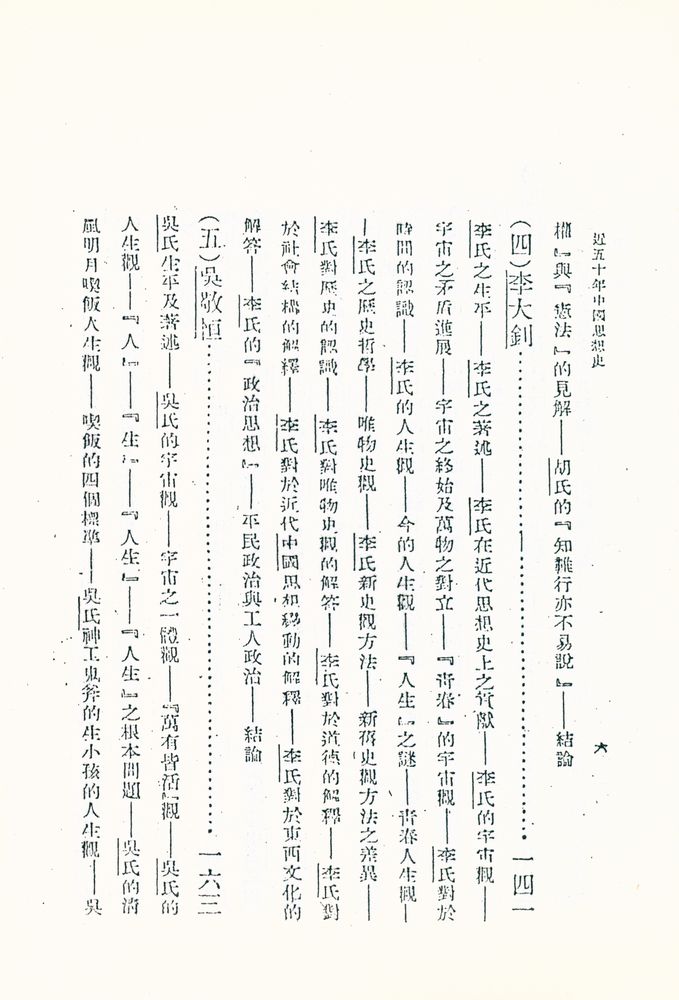 近五十年中國思想史
六
權』與『憲法』的見解——胡氏的『知難行亦不易說』——結論
(四)李大釗…………………………一四一
李氏之生平——李氏之著述——李氏在近代思想史上之貢獻——李氏的宇宙觀——
宇宙之矛盾進展——宇宙之終始及萬物之對立——『青春』的宇宙觀——李氏對於
時間的認識——李氏的人生觀——今的人生觀——『人生』之謎——青春人生觀—
—李氏之歷史哲學——唯物史觀——李氏新史觀方法——新舊史觀方法之差異——
李氏對歷史的認識——李氏對唯物史觀的解答——李氏對於道德的解釋——李氏對
於社會結構的解釋——李氏對於近代中國思想移動的解釋——李氏對於東西文化的
解答——李氏的『政治思想』——平民政治與工人政治——結論
(五)吳敬恒…………………………一六三
吳氏生平及著述——吳氏的宇宙觀——宇宙之一體觀——『萬有皆活』觀——吳氏的
人生觀——『人』——『生』——『人生』——『人生』之根本問題——吳氏的清
風明月喫飯人生觀——喫飯的四個標準——吳氏神工鬼斧的生小孩的人生觀——吳